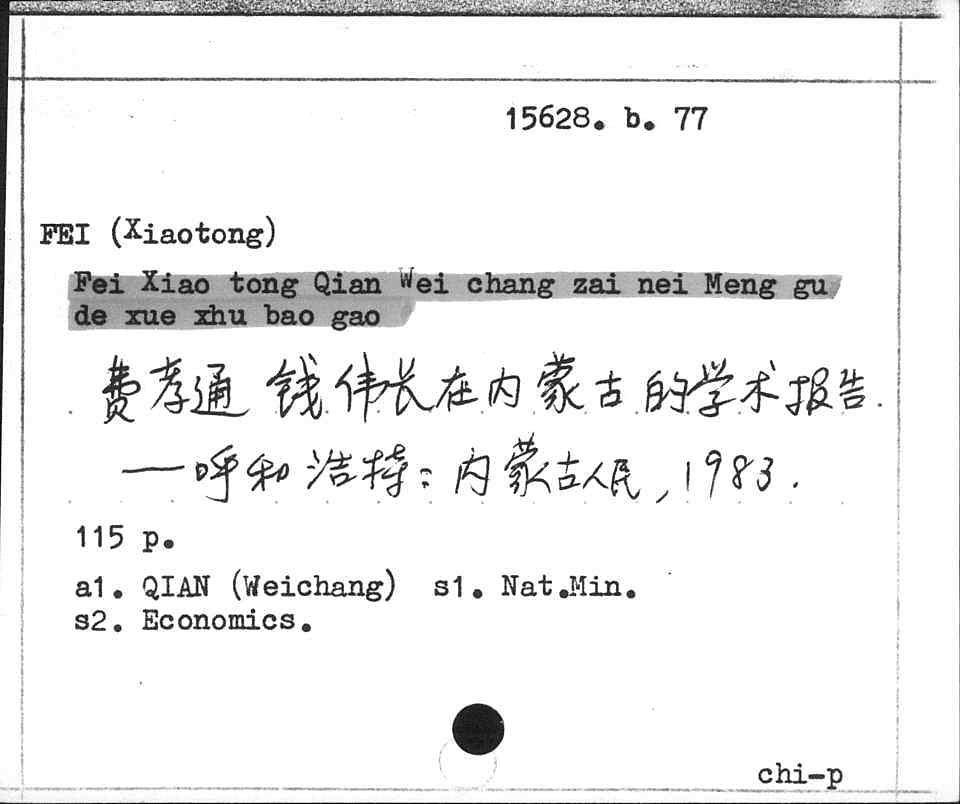 15628. b. 77
FEI (Xiaotong)
Fei Xiao tong Qian Wei chang zai nei Meng gu
de xue xhu bao gao
费孝通 钱伟长在内蒙古的学术报告.
—呼和浩特: 内蒙古人民, 1983.
115 p.
a1. QIAN (Weichang) s1. Nat.Min.
s2. Economics.
chi-p